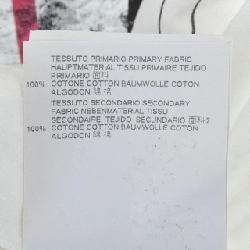 TESSUTO PRIMARIO PRIMARY FABRIC
HAUPTMATERIAL TISSU PRIMAIRE TEJIDO
PRIMARIO 面料
100% COTONE COTTON BAUMWOLLE COTON
ALGODON 綿 棉
TESSUTO SECONDARIO SECONDARY
FABRIC NEBENMATERIAL TISSU
SECONDAIRE TEJIDO SECUNDARIO 面料2
100% COTONE COTTON BAUMWOLLE COTON
ALGODON 綿 棉